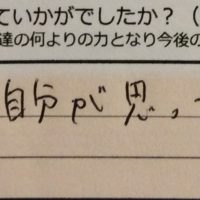 ていかがでしたか？（
達の何よりの力となり今後の
自分が思っ